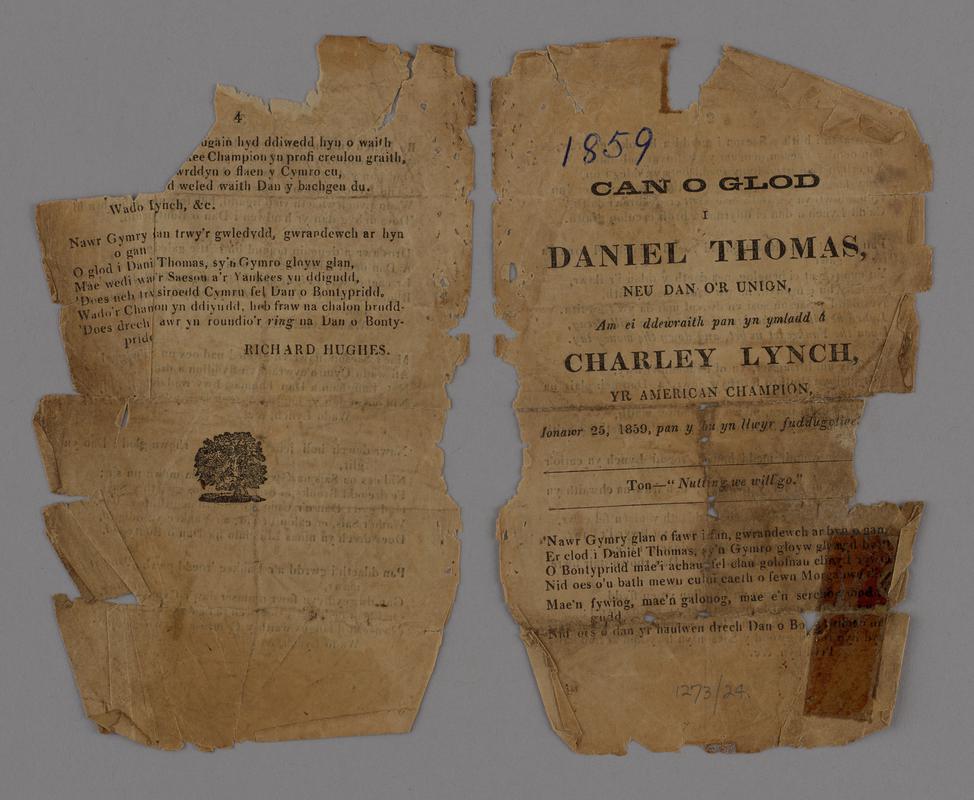 4
ugain hyd ddiwedd hyn o waith
ee Champion yn profi creulon graith,
wrddyn o flaen y Cymro cu,
d weled waith Dan y bachgen du.
Wado Lynch, &c.
Nawr Gymry lan trwy'r gwledydd, gwrandewch ar hyn
o gan
O glod i Dani Thomas, sy'n Gymro gloyw glan,
Mae wedi wa 'r Saeson a'r Yankees yn ddigudd,
'Does neb siroedd Cymru fel Dan o Bontypridd,
Wado'r Chanon yn ddiyudd, heb fraw na chalon brudd-
'Does drech awr yn roundio'r ring na Dan o Bonty-
pridd
RICHARD HUGHES.
1859
CAN O GLOD
I
DANIEL THOMAS,
NEU DAN O'R UNIGN,
Am ei ddewraith pan yn ymladd á
CHARLEY LYNCH,
YR AMERICAN CHAMPION,
Ionawr 25, 1859, pan y bu yn llwyr fuddugoliae
Ton—"Nutting we will go."
Nawr Gymry glan o fawr i fan, gwrandewch ar hyn o gan,
Er clod i Daniel Thomas, sy'n Gymro gloyw
O Bontypridd mae'i achau, fel clau golofnau
Nid oes o'u bath mewn culni caeth o fewn
Mae'n fywiog, mae'n galonog, mae e'n
gudd
Nid oes o dan yr haulwen drech Dan o Bo
1273/24.